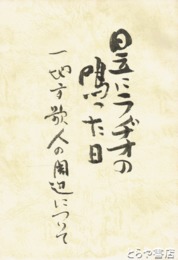 日立にラヂオの
鳴った日
一地方歌人の周辺について
とらや書店